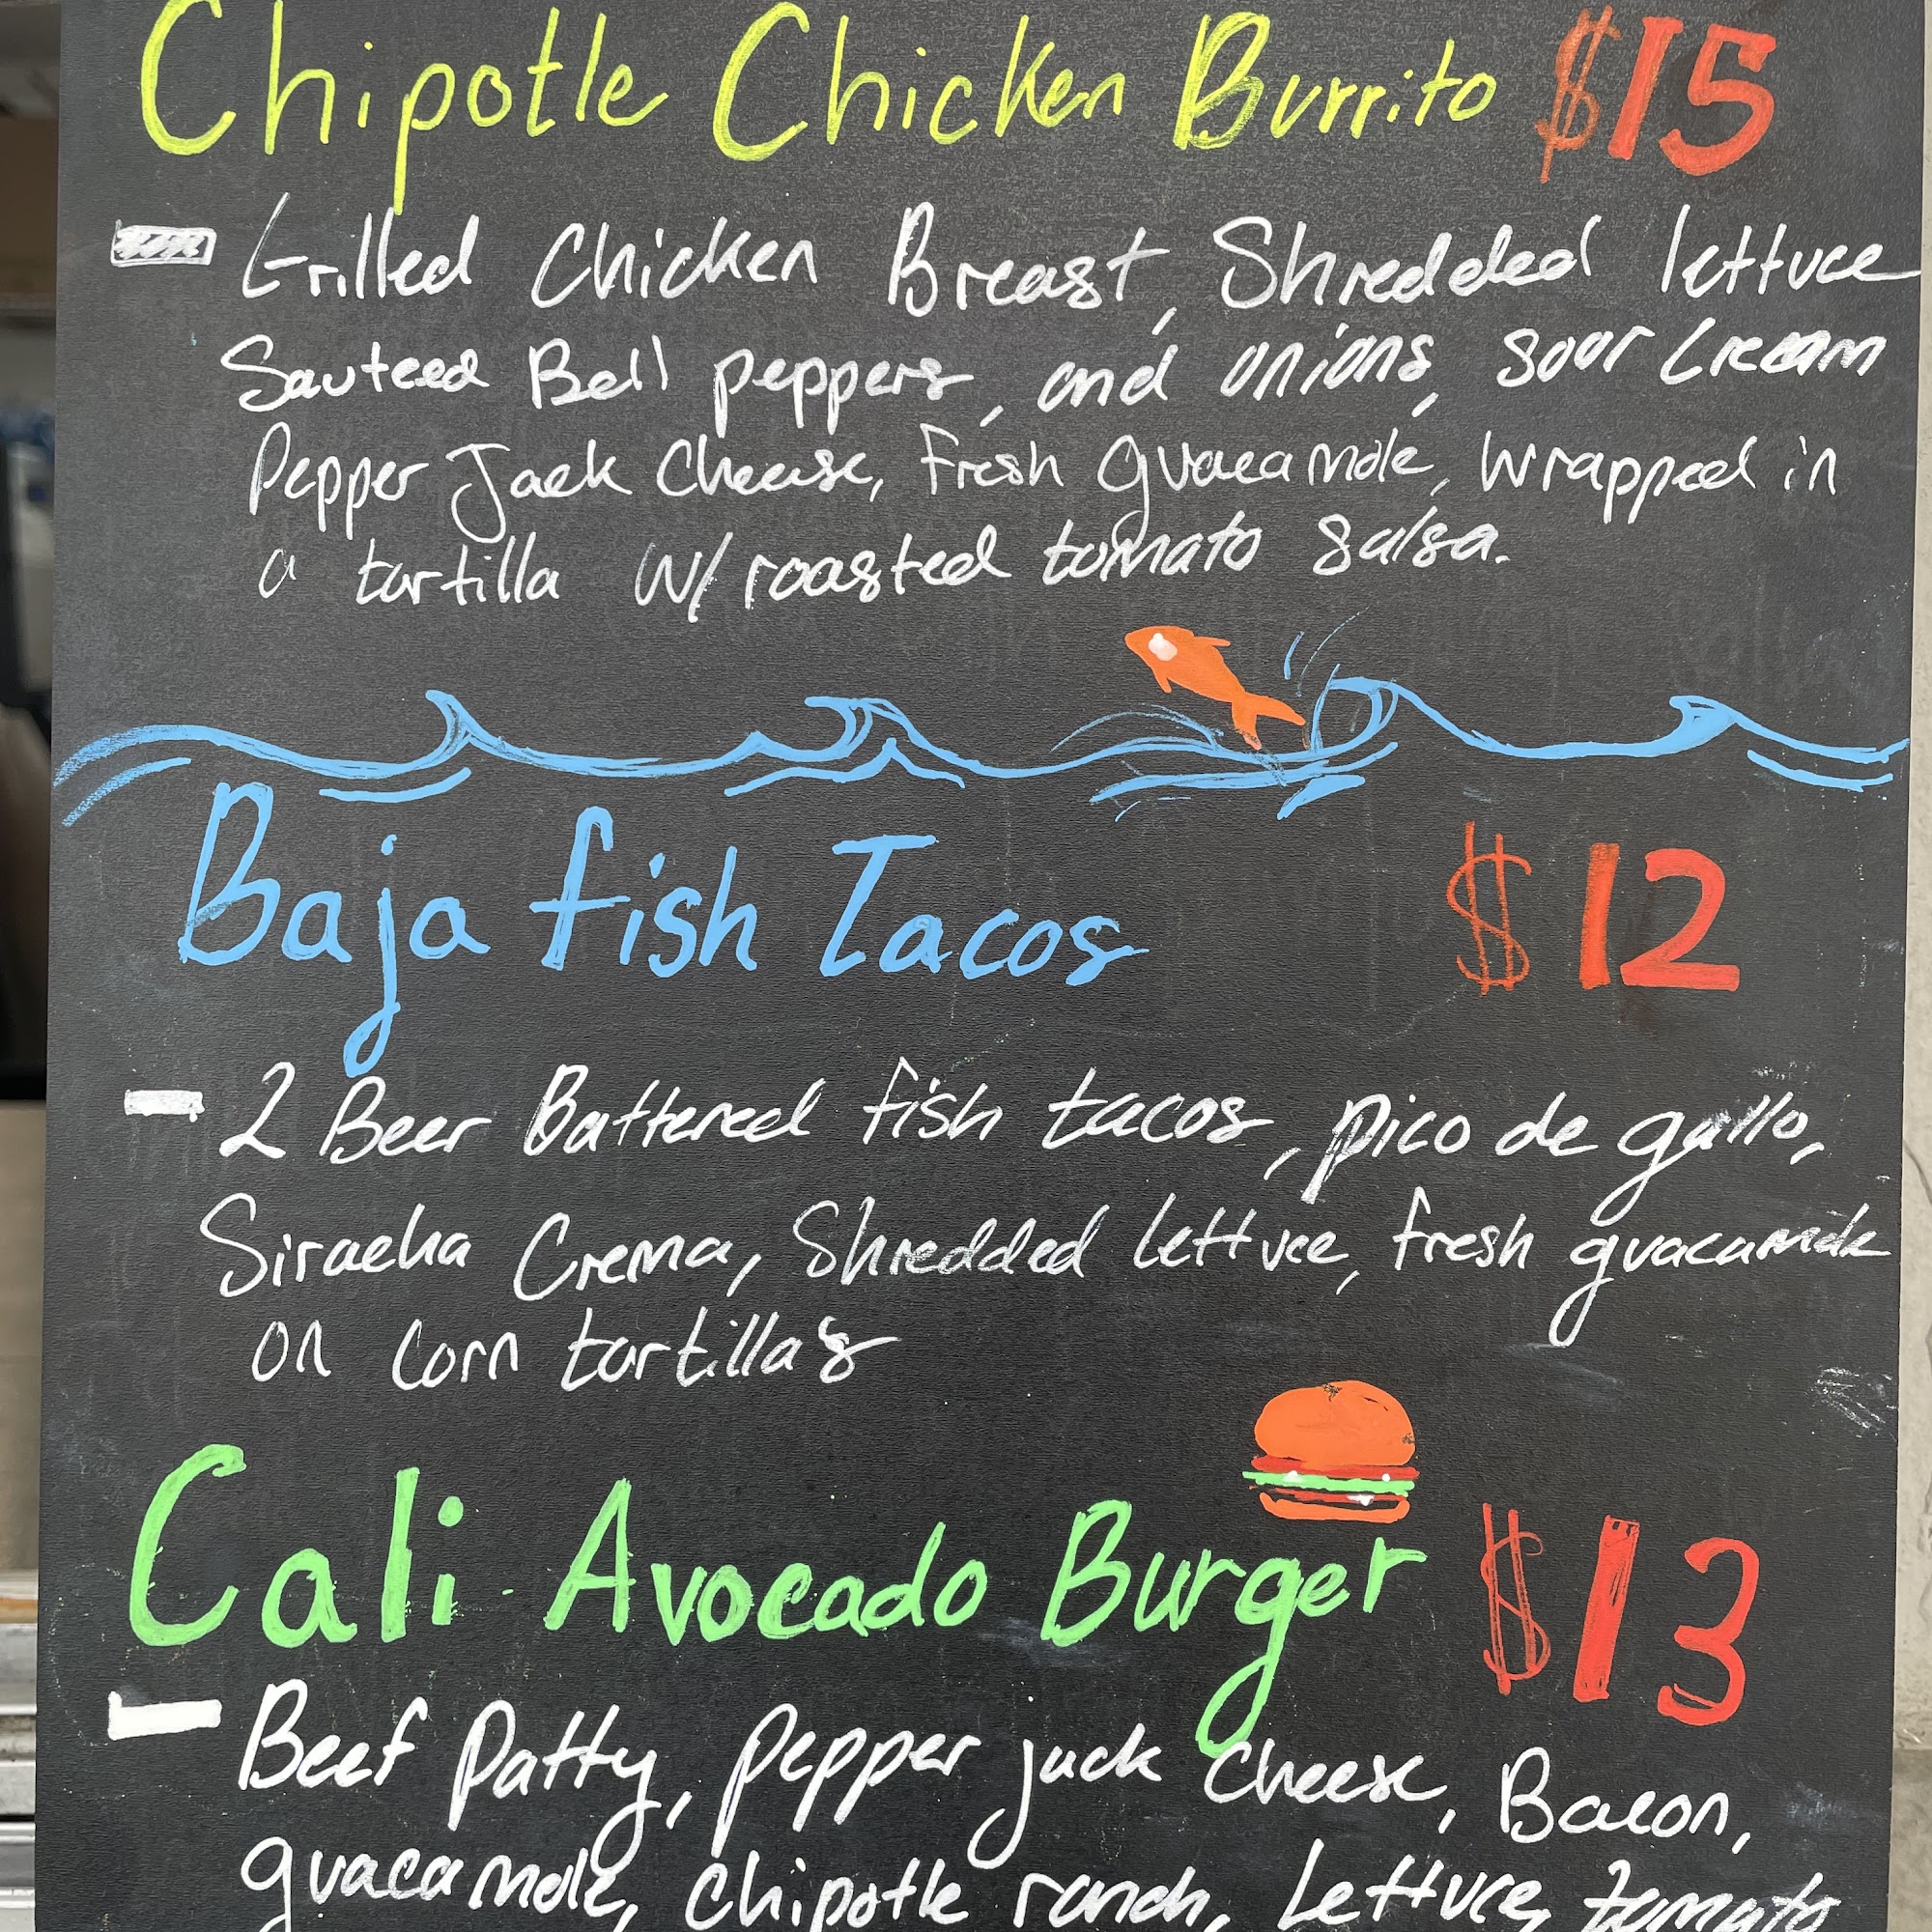 Chipotle Chicken Burrito $15
Grilled Chicken Breast, Shredded lettuce
Sauteed Bell peppers, and onions, sour Cream
Pepper Jack Cheese, Fresh guacamole, wrapped in
a tortilla w/ roasted tomato salsa.
Baja fish Tacos $12
- 2 Beer Battered fish tacos, pico de gallo,
Siracha Crema, Shredded lettuce, fresh guacamole
on corn tortillas
Cali-Avocado Burger $13
- Beef Patty, pepper jack cheese, Bacon,
guacamole, chipotle ranch, Lettuce, tomato